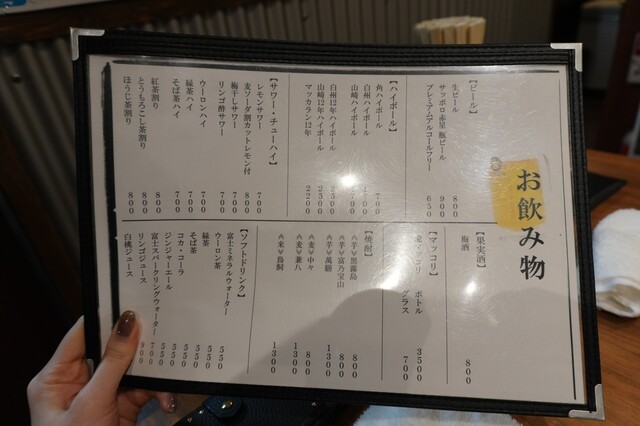 お飲み物
【ビール】
生ビール 800
サッポロ赤星 瓶ビール 900
プレミアムアルコールフリー 650
【ハイボール】
角ハイボール 700
白州ハイボール
山崎ハイボール
白州12年ハイボール 2500
山崎12年ハイボール 2500
マッカラン12年 2200
【サワー・チューハイ】
レモンサワー 700
麦ソーダ割カットレモン付 800
梅干しサワー 700
リンゴ酢サワー 700
ウーロンハイ 700
緑茶ハイ 700
そば茶ハイ 700
紅茶割り 800
とうもろこし茶割り 800
ほうじ茶割り 800
【果実酒】
梅酒 800
【マッコリ】
マッコリ ボトル 3500
グラス 700
【焼酎】
≪芋≫黒霧島 800
≪芋≫富乃宝山 800
≪芋≫萬膳 1300
≪麦≫中々 800
≪麦≫兼八 1300
≪米≫鳥飼 1300
【ソフトドリンク】
富士ミネラルウォーター 550
ウーロン茶 550
緑茶 550
そば茶 550
コカ・コーラ 550
ジンジャーエール 550
富士スパークリングウォーター 550
リンゴジュース 700
白桃ジュース 900